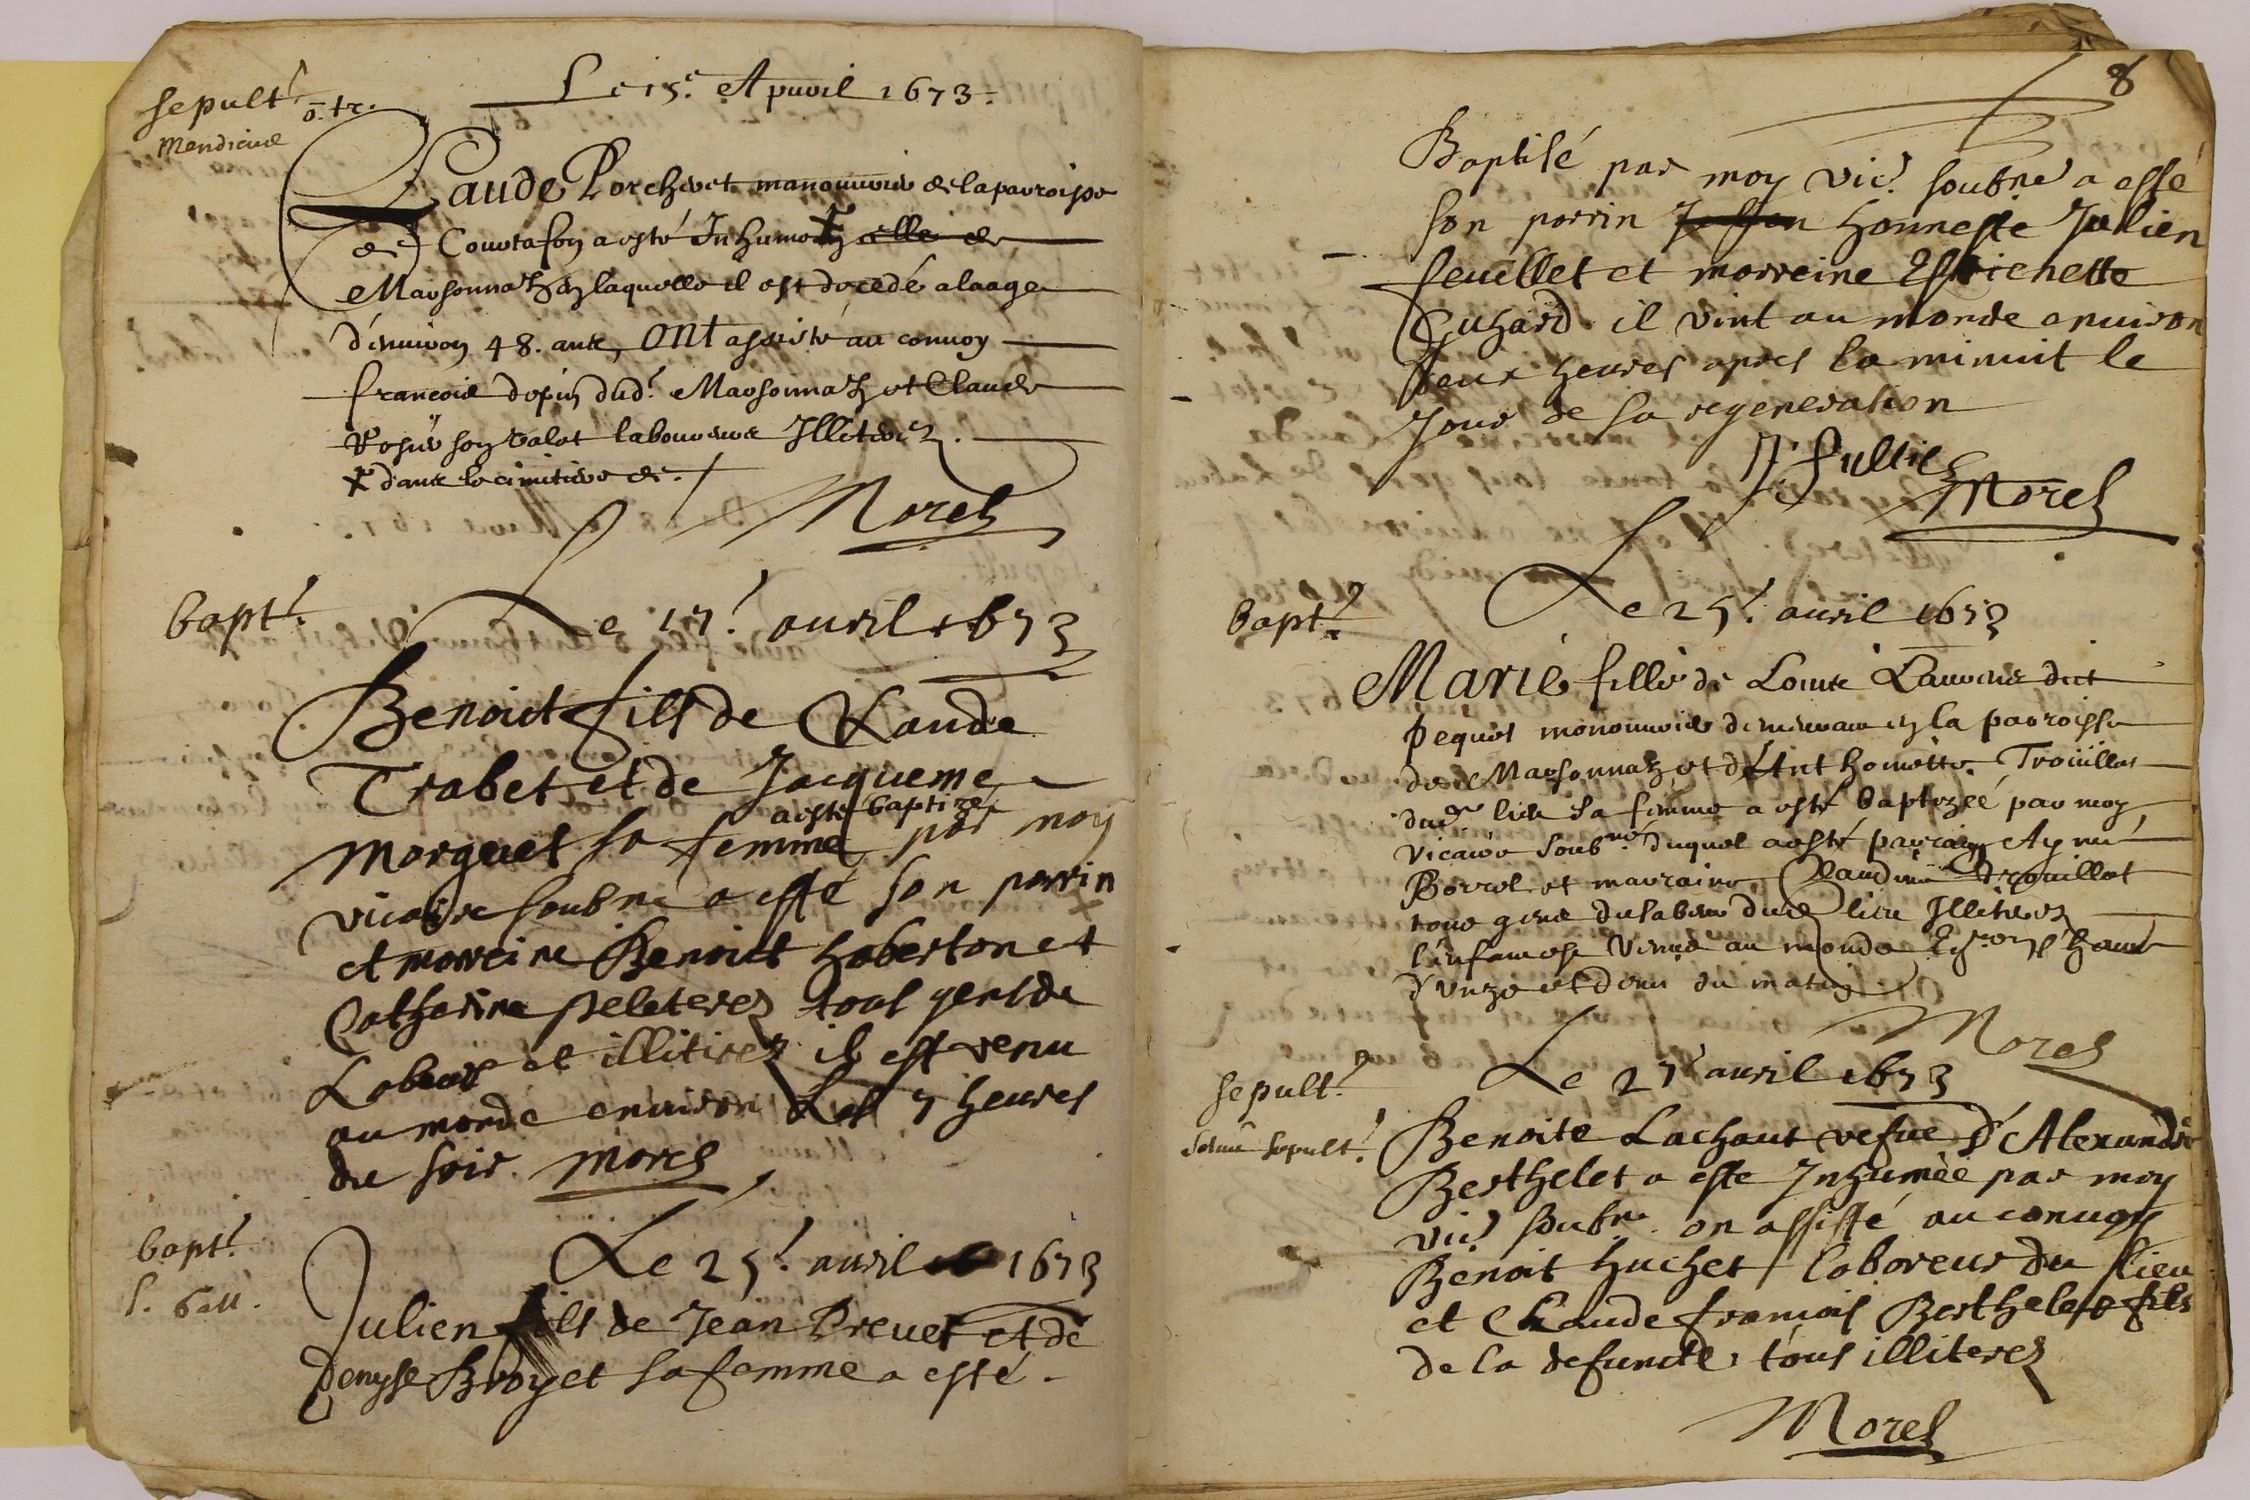 sepult.re
o. tr.
Mendiciue
Le 15.e Apuril 1673.
Claude Porcheret manouurier de la parroisse
de Courtafon a esté Inhumé celle de
Marsonnaz en laquelle il est decedé a laage
d'enuiron 48. ans, ont assisté au conuoy
francois depin dud.t Marsonnaz et Claude
son valet laboureurs Illiterez.
+ dans le cimitiere de.
Morel
bapt.e
Le 17.e auril 1673
Benoict fils de Claude
Trabet et de Jacqueme
a esté baptizé
Morguet sa femme par moy
vicaire soubne a esté son parrin
et marreine Benoict hoberton et
Catherine peleterez tous gens de
Labeur et illitirez il est venu
au monde enuiron Les 7 heures
du soir. Morel
bapt.e
Le 25.e auril 1673
Julien fils de Jean Preuet et de
Denyse Broyet sa femme a esté
8
Baptisé par moy vic.e soubne a esté
son parrin honneste Julien
feuillet et marreine Estienette
Cuhard. il vint au monde enuiron
deux heures apres la minuit le
Jour de sa regeneration
Morel
bapt.e
Le 25.e auril 1673
Marie fille de Louis Lauvens dit
pequot manouurier demeurant en la parroisse
de Marsonnaz et d'Anthoinette Trouillot
dud. lieu sa femme a esté baptizeé par moy
vicaire soubné duquel a esté parrain Aymé
Borrel et marraine Claudine Trouillot
tous gens du labeur dud lieu Illiterez
l'enfant est venue au monde enuiron l'heure
d'vnze et demi du matin
Morel
sepult.e
sepult.e
Le 27 auril 1673
Benoite Lachaut vefue d'Alexandre
Berthelet a este Inhumée par moy
vic.e soubne. on assisté au conuoy
Benoit huchet laboreur du lieu
et Claude francois Berthelet fils
de la defuncte tous illiterez
Morel